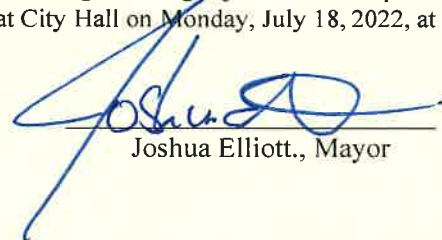 at City Hall on Monday, July 18, 2022, at
Joshua Elliott., Mayor